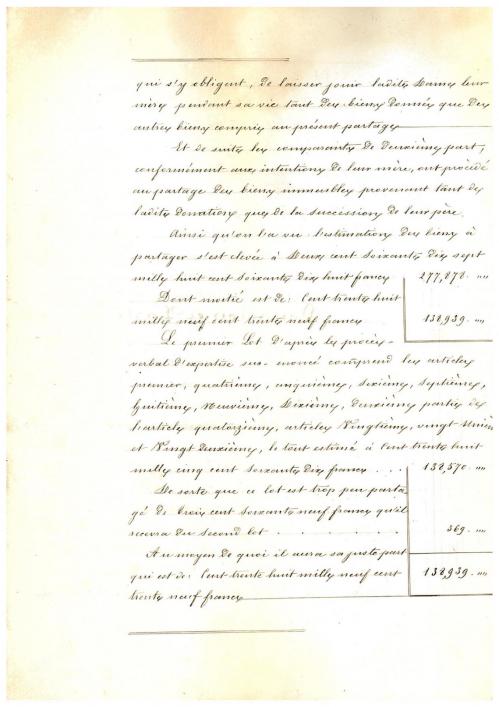 qui s'y obligent, de laisser jouir ladite Dame leur
mère pendant sa vie tant des biens donnés que des
autres biens compris au présent partage
Et de suite les comparants de deuxième part,
conformément aux intentions de leur mère, ont procédé
au partage des biens immeubles provenant tant de
ladite donation que de la succession de leur père.
Ainsi qu'on l'a vu l'estimation des biens à
partager s'est élevée à Deux cent soixante dix sept
mille huit cent soixante dix huit francs 277,878. "
Dont moitié est de: Cent trente huit
mille neuf cent trente neuf francs 138,939. "
Le premier Lot d'après le procès-
verbal d'expertise sus-énoncé comprend les articles
premier, quatrième, cinquième, sixième, septième,
huitième, neuvième, dixième, deuxième partie de
l'article quatorzième, articles Vingtième, vingt-unième
et Vingt deuxième, le tout estimé à Cent trente huit
mille cinq cent soixante dix francs . . . . 138,570. "
De sorte que ce lot est trop peu parta-
gé de trois cent soixante neuf francs qu'il
recevra du second lot . . . . . . . 369. "
Au moyen de quoi il aura sa juste part
qui est de: Cent trente huit mille neuf cent 138,939. "
trente neuf francs